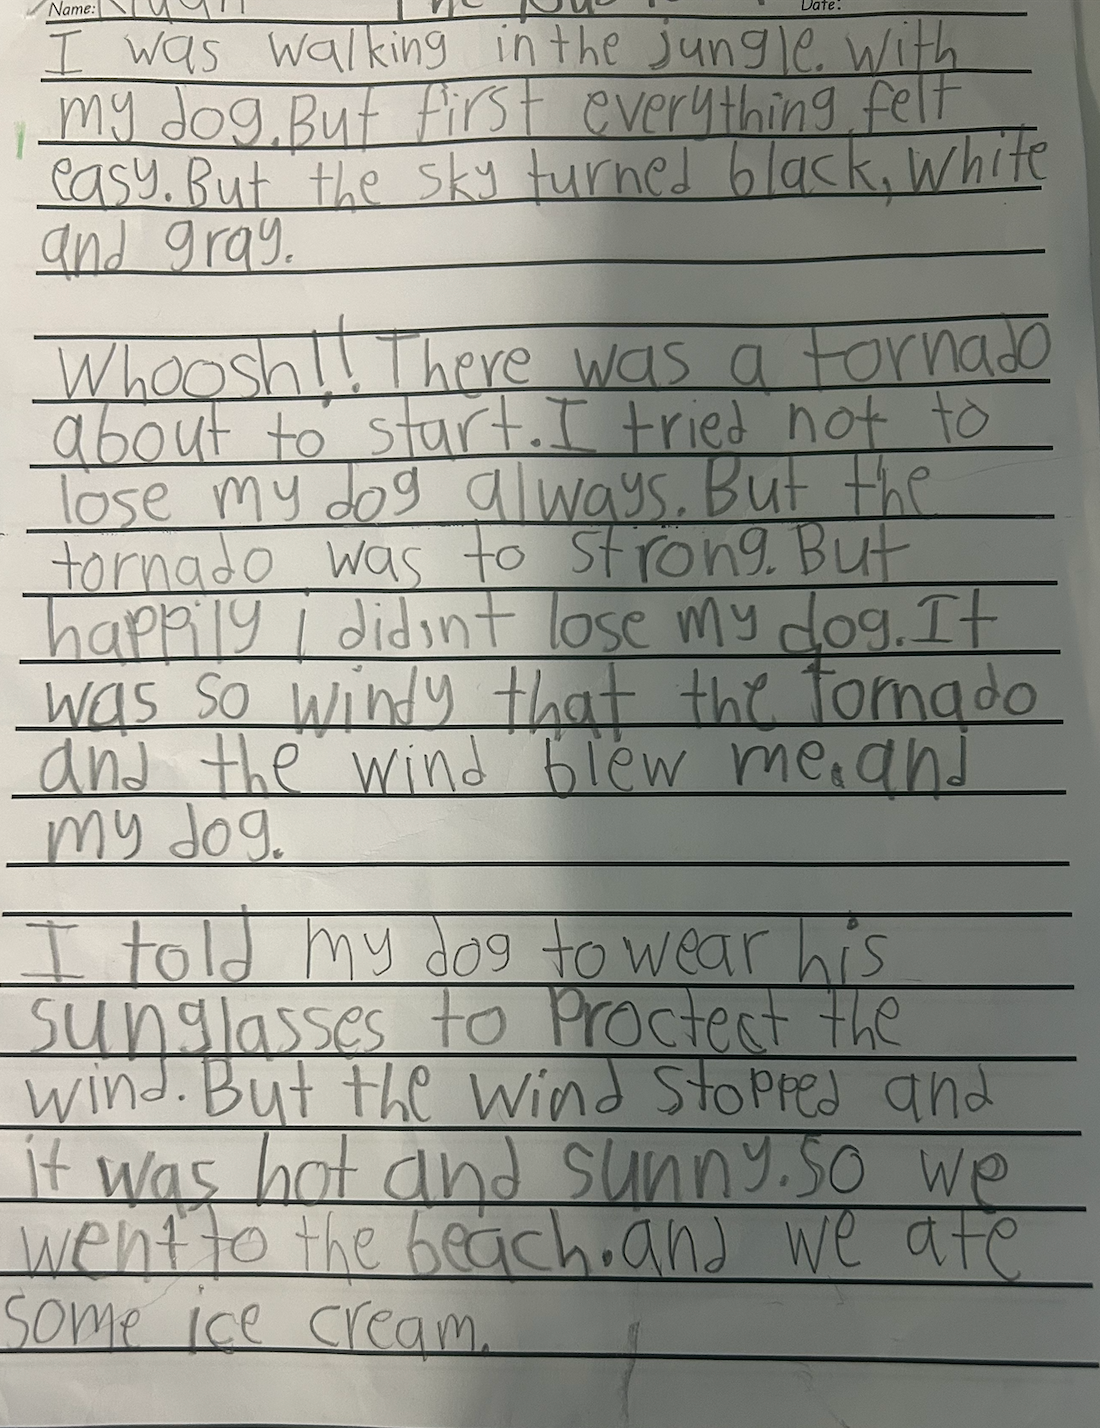 Name:
Date:
I was walking in the jungle. With
my dog. But first everything felt
easy. But the sky turned black, white
and gray.
Whoosh!! There was a tornado
about to start. I tried not to
lose my dog always. But the
tornado was to strong. But
happily i didint lose my dog. It
was so windy that the tornado
and the wind blew me. and
my dog.
I told my dog to wear his
sunglasses to Proctect the
wind. But the wind stopped and
it was hot and sunny. So we
went to the beach. and we ate
some ice cream.